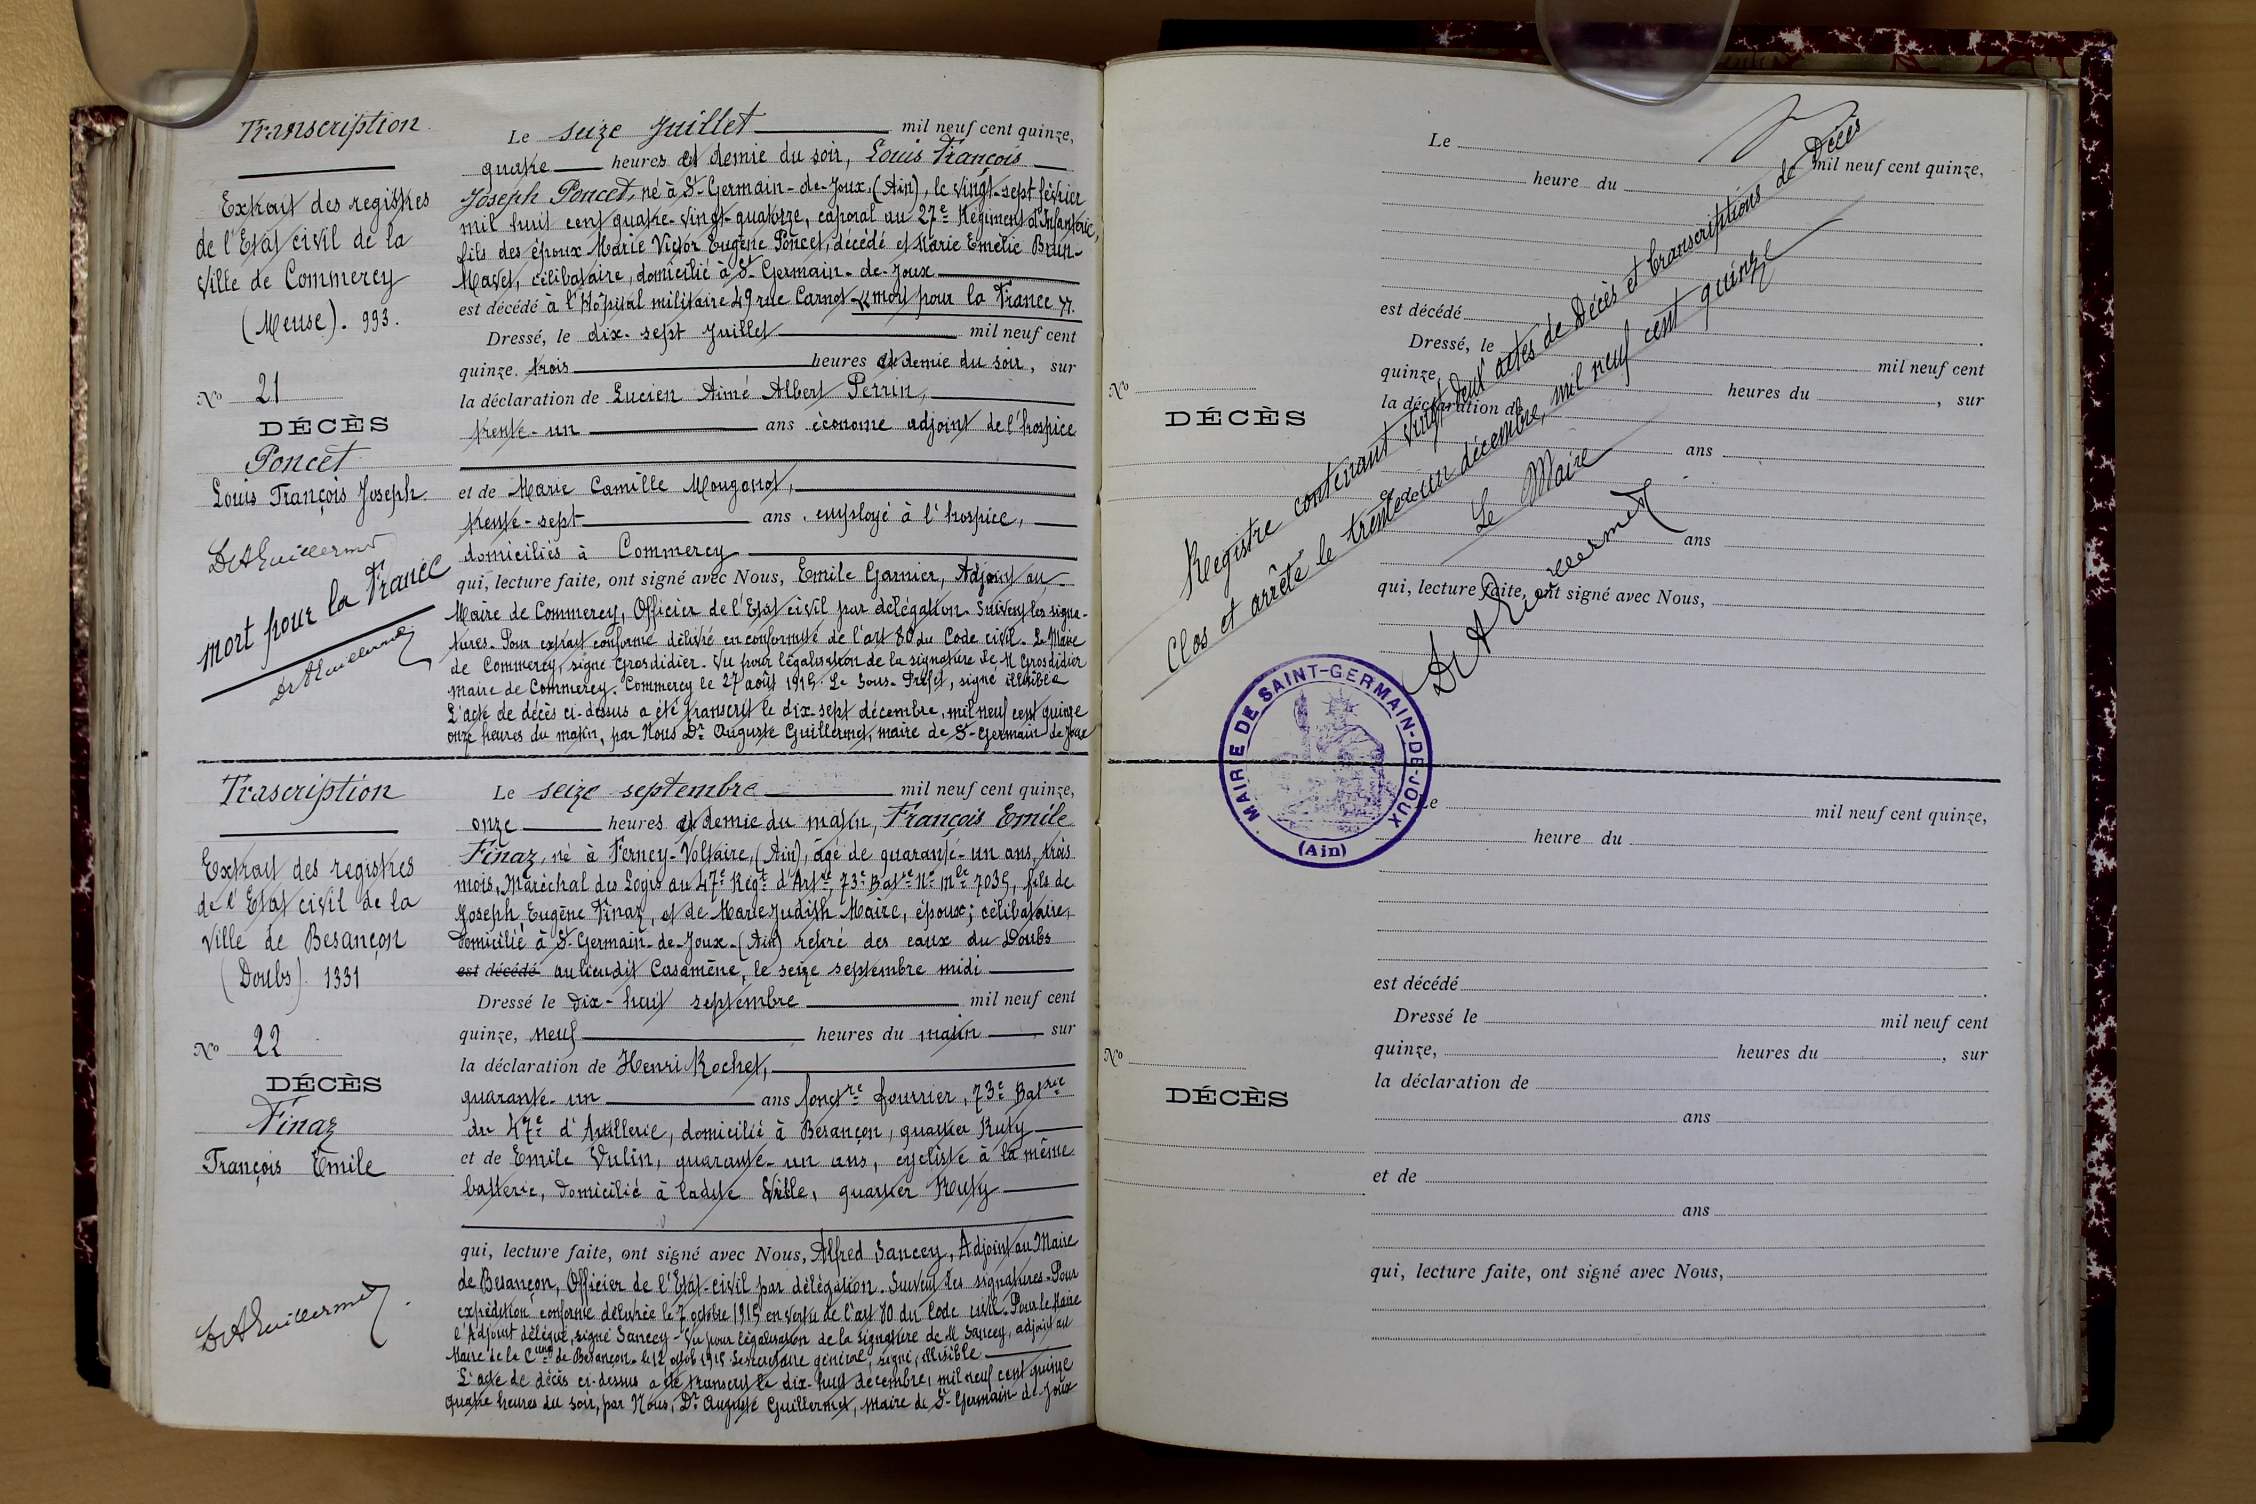 Transcription
Extrait des registres
de l'Etat civil de la
Ville de Commercy
(Meuse). 993.
No 21
DÉCÈS
Poncet
Louis François Joseph
Dr A Guillermet
mort pour la France
Dr A Guillermet
Le seize Juillet mil neuf cent quinze,
quatre heures et demie du soir, Louis François
Joseph Poncet, né à St Germain-de-Joux, (Ain), le vingt-sept février
mil huit cent quatre-vingt-quatorze, caporal au 27e Régiment d'Infanterie,
fils des époux Marie Victor Eugène Poncet, décédé et Marie Emelie Brun-
Mavet, célibataire, domicilié à St Germain-de-Joux
est décédé à l'Hôpital militaire 49 rue Carnot "mort pour la France".
Dressé, le dix-sept Juillet mil neuf cent
quinze. trois heures et demie du soir, sur
la déclaration de Lucien Aimé Albert Perrin,
trente-un ans économe adjoint de l'hospice
et de Marie Camille Mougonot,
trente-sept ans. employé à l'hospice,
domiciliés à Commercy
qui, lecture faite, ont signé avec Nous, Emile Garnier, Adjoint au
Maire de Commercy, Officier de l'Etat civil par délégation. Suivent les signa-
tures. Pour extrait conforme délivré en conformité de l'art 80 du Code civil. Le Maire
de Commercy, signé Grosdidier. Vu pour légalisation de la signature de M Grosdidier
maire de Commercy. Commercy le 27 août 1915. Le Sous-Préfet, signé illisible
L'acte de décès ci-dessus a été transcrit le dix-sept décembre, mil neuf cent quinze
onze heures du matin, par Nous Dr Auguste Guillermet, maire de St-Germain-de-Joux
Trascription
Extrait des registres
de l'Etat civil de la
Ville de Besançon
(Doubs) 1331
No 22
DÉCÈS
Finaz
François Emile
Dr A Guillermet
Le seize septembre mil neuf cent quinze,
onze heures et demie du matin, François Emile
Finaz, né à Ferney-Voltaire, (Ain), âgé de quarante-un ans, trois
mois, Maréchal des Logis au 47e Régt d'Artrie, 73e Batrie No mle 7035, fils de
Joseph Eugène Finaz, et de Marie Judith Maire, époux; célibataire,
domicilié à St Germain-de-Joux-(Ain) retiré des eaux du Doubs
est décédé au lieu dit Casamène, le seize septembre midi
Dressé le dix-huit septembre mil neuf cent
quinze, neuf heures du matin sur
la déclaration de Henri Rochet,
quarante-un ans fonctre fourrier, 73e Batrie
du 47e d'Artillerie, domicilié à Besançon, quartier Ruty
et de Emile Vulin, quarante-un ans, cycliste à la même
batterie, domicilié à ladite Ville, quartier Ruty
qui, lecture faite, ont signé avec Nous, Alfred Sancey, Adjoint au Maire
de Besançon, Officier de l'Etat-civil par délégation. Suivent les signatures-Pour
expédition conforme délivrée le 7 octobre 1915 en vertu de l'art 80 du Code civil. Pour le Maire
l'Adjoint délégué, signé Sancey-Vu pour légalisation de la signature de M Sancey, adjoint au
Maire de la Cune de Besançon. le 12 octob 1915 Le secrétaire général, signé, illisible
L'acte de décès ci-dessus a été transcrit le dix-huit décembre, mil neuf cent quinze
quatre heures du soir, par Nous, Dr Auguste Guillermet, maire de St Germain-de-Joux
Le mil neuf cent quinze,
heure du
est décédé
Dressé, le mil neuf cent
quinze, heures du , sur
la déclaration de
ans
et de
ans
qui, lecture faite, ont signé avec Nous,
No
DÉCÈS
Registre contenant vingt deux actes de Décès et transcriptions de Décès
Clos et arrêté le trente un décembre, mil neuf cent quinze
Le Maire
Dr A Guillermet
MAIRIE DE SAINT-GERMAIN-DE-JOUX
(Ain)
Le mil neuf cent quinze,
heure du
est décédé
Dressé le mil neuf cent
quinze, heures du , sur
la déclaration de
ans
et de
ans
qui, lecture faite, ont signé avec Nous,
No
DÉCÈS